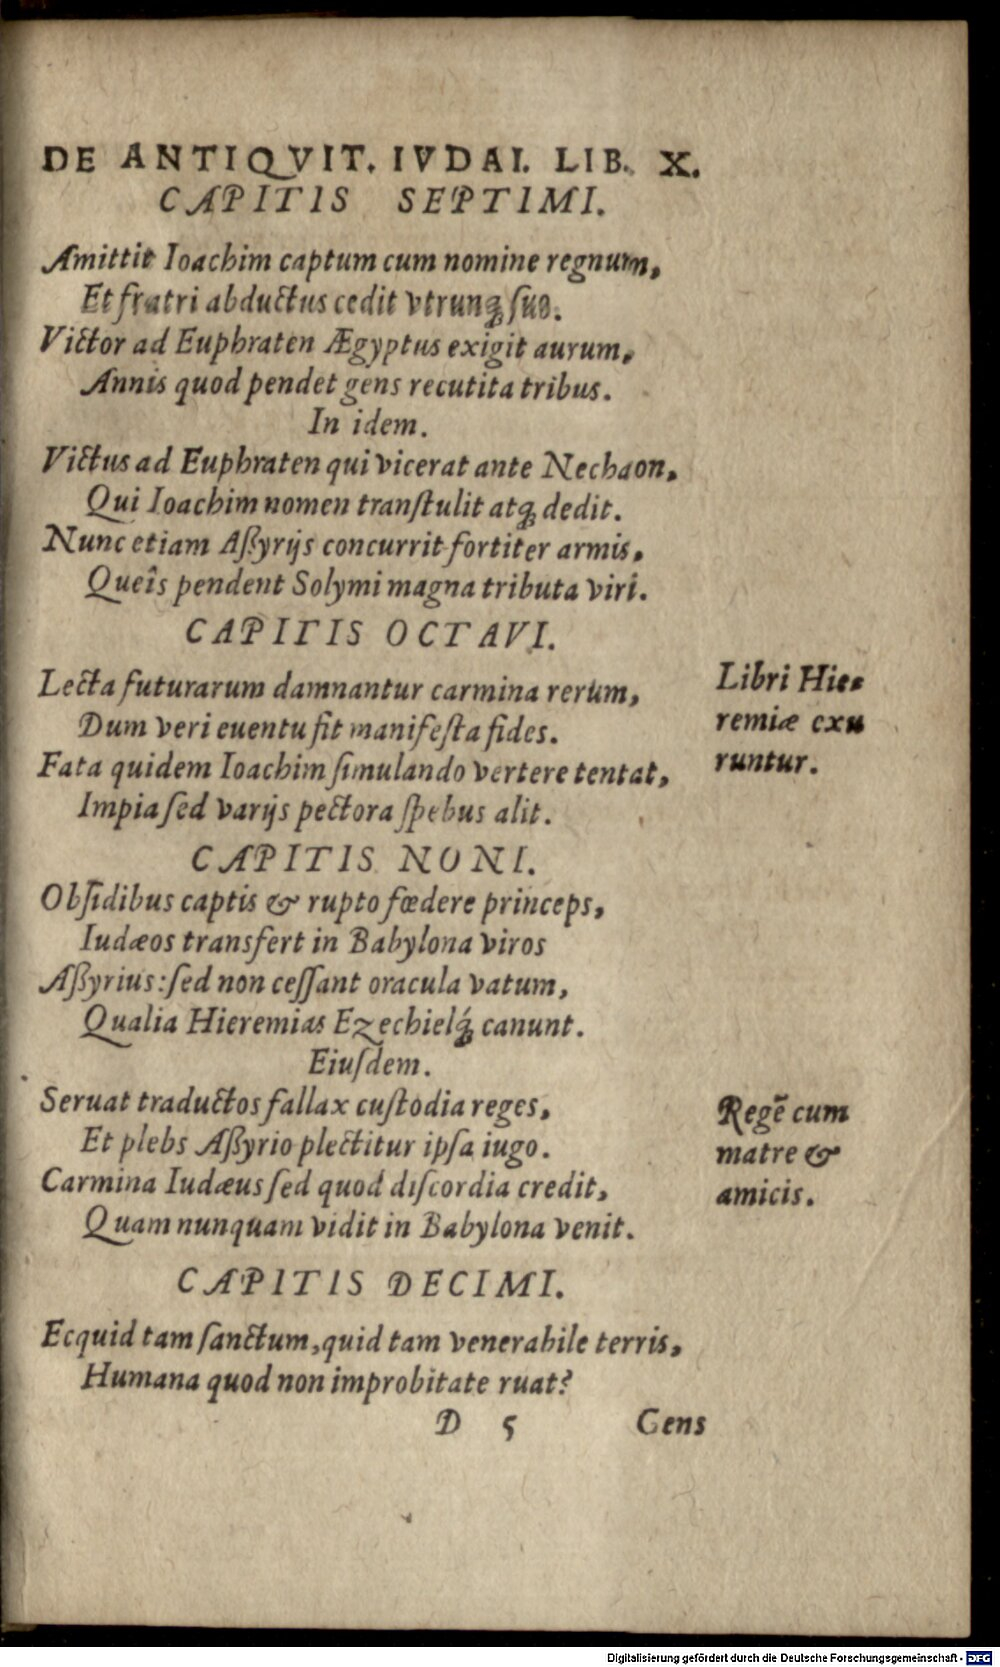 DE ANTIQVIT. IVDAI. LIB. X.
CAPITIS SEPTIMI.
Amittit Ioachim captum cum nomine regnum,
Et fratri abductus cedit vtrunq́ꝫ suo.
Victor ad Euphraten Ægyptus exigit aurum,
Annis quod pendet gens recutita tribus.
In idem.
Victus ad Euphraten qui vicerat ante Nechaon,
Qui Ioachim nomen transtulit atqꝫ dedit.
Nunc etiam Aßyrijs concurrit fortiter armis,
Queîs pendent Solymi magna tributa viri.
CAPITIS OCTAVI.
Lecta futurarum damnantur carmina rerum,
Dum veri euentu fit manifesta fides.
Fata quidem Ioachim simulando vertere tentat,
Impia sed varijs pectora spebus alit.
Libri Hie-
remiæ exu
runtur.
CAPITIS NONI.
Obsidibus captis & rupto fœdere princeps,
Iudæos transfert in Babylona viros
Aßyrius: sed non cessant oracula vatum,
Qualia Hieremias Ezechielq́ꝫ canunt.
Eiusdem.
Seruat traductos fallax custodia reges,
Et plebs Aßyrio plectitur ipsa iugo.
Carmina Iudæus sed quod discordia credit,
Quam nunquam vidit in Babylona venit.
Regē cum
matre &
amicis.
CAPITIS DECIMI.
Ecquid tam sanctum, quid tam venerabile terris,
Humana quod non improbitate ruat?
D 5 Gens
Digitalisierung gefördert durch die Deutsche Forschungsgemeinschaft - DFG